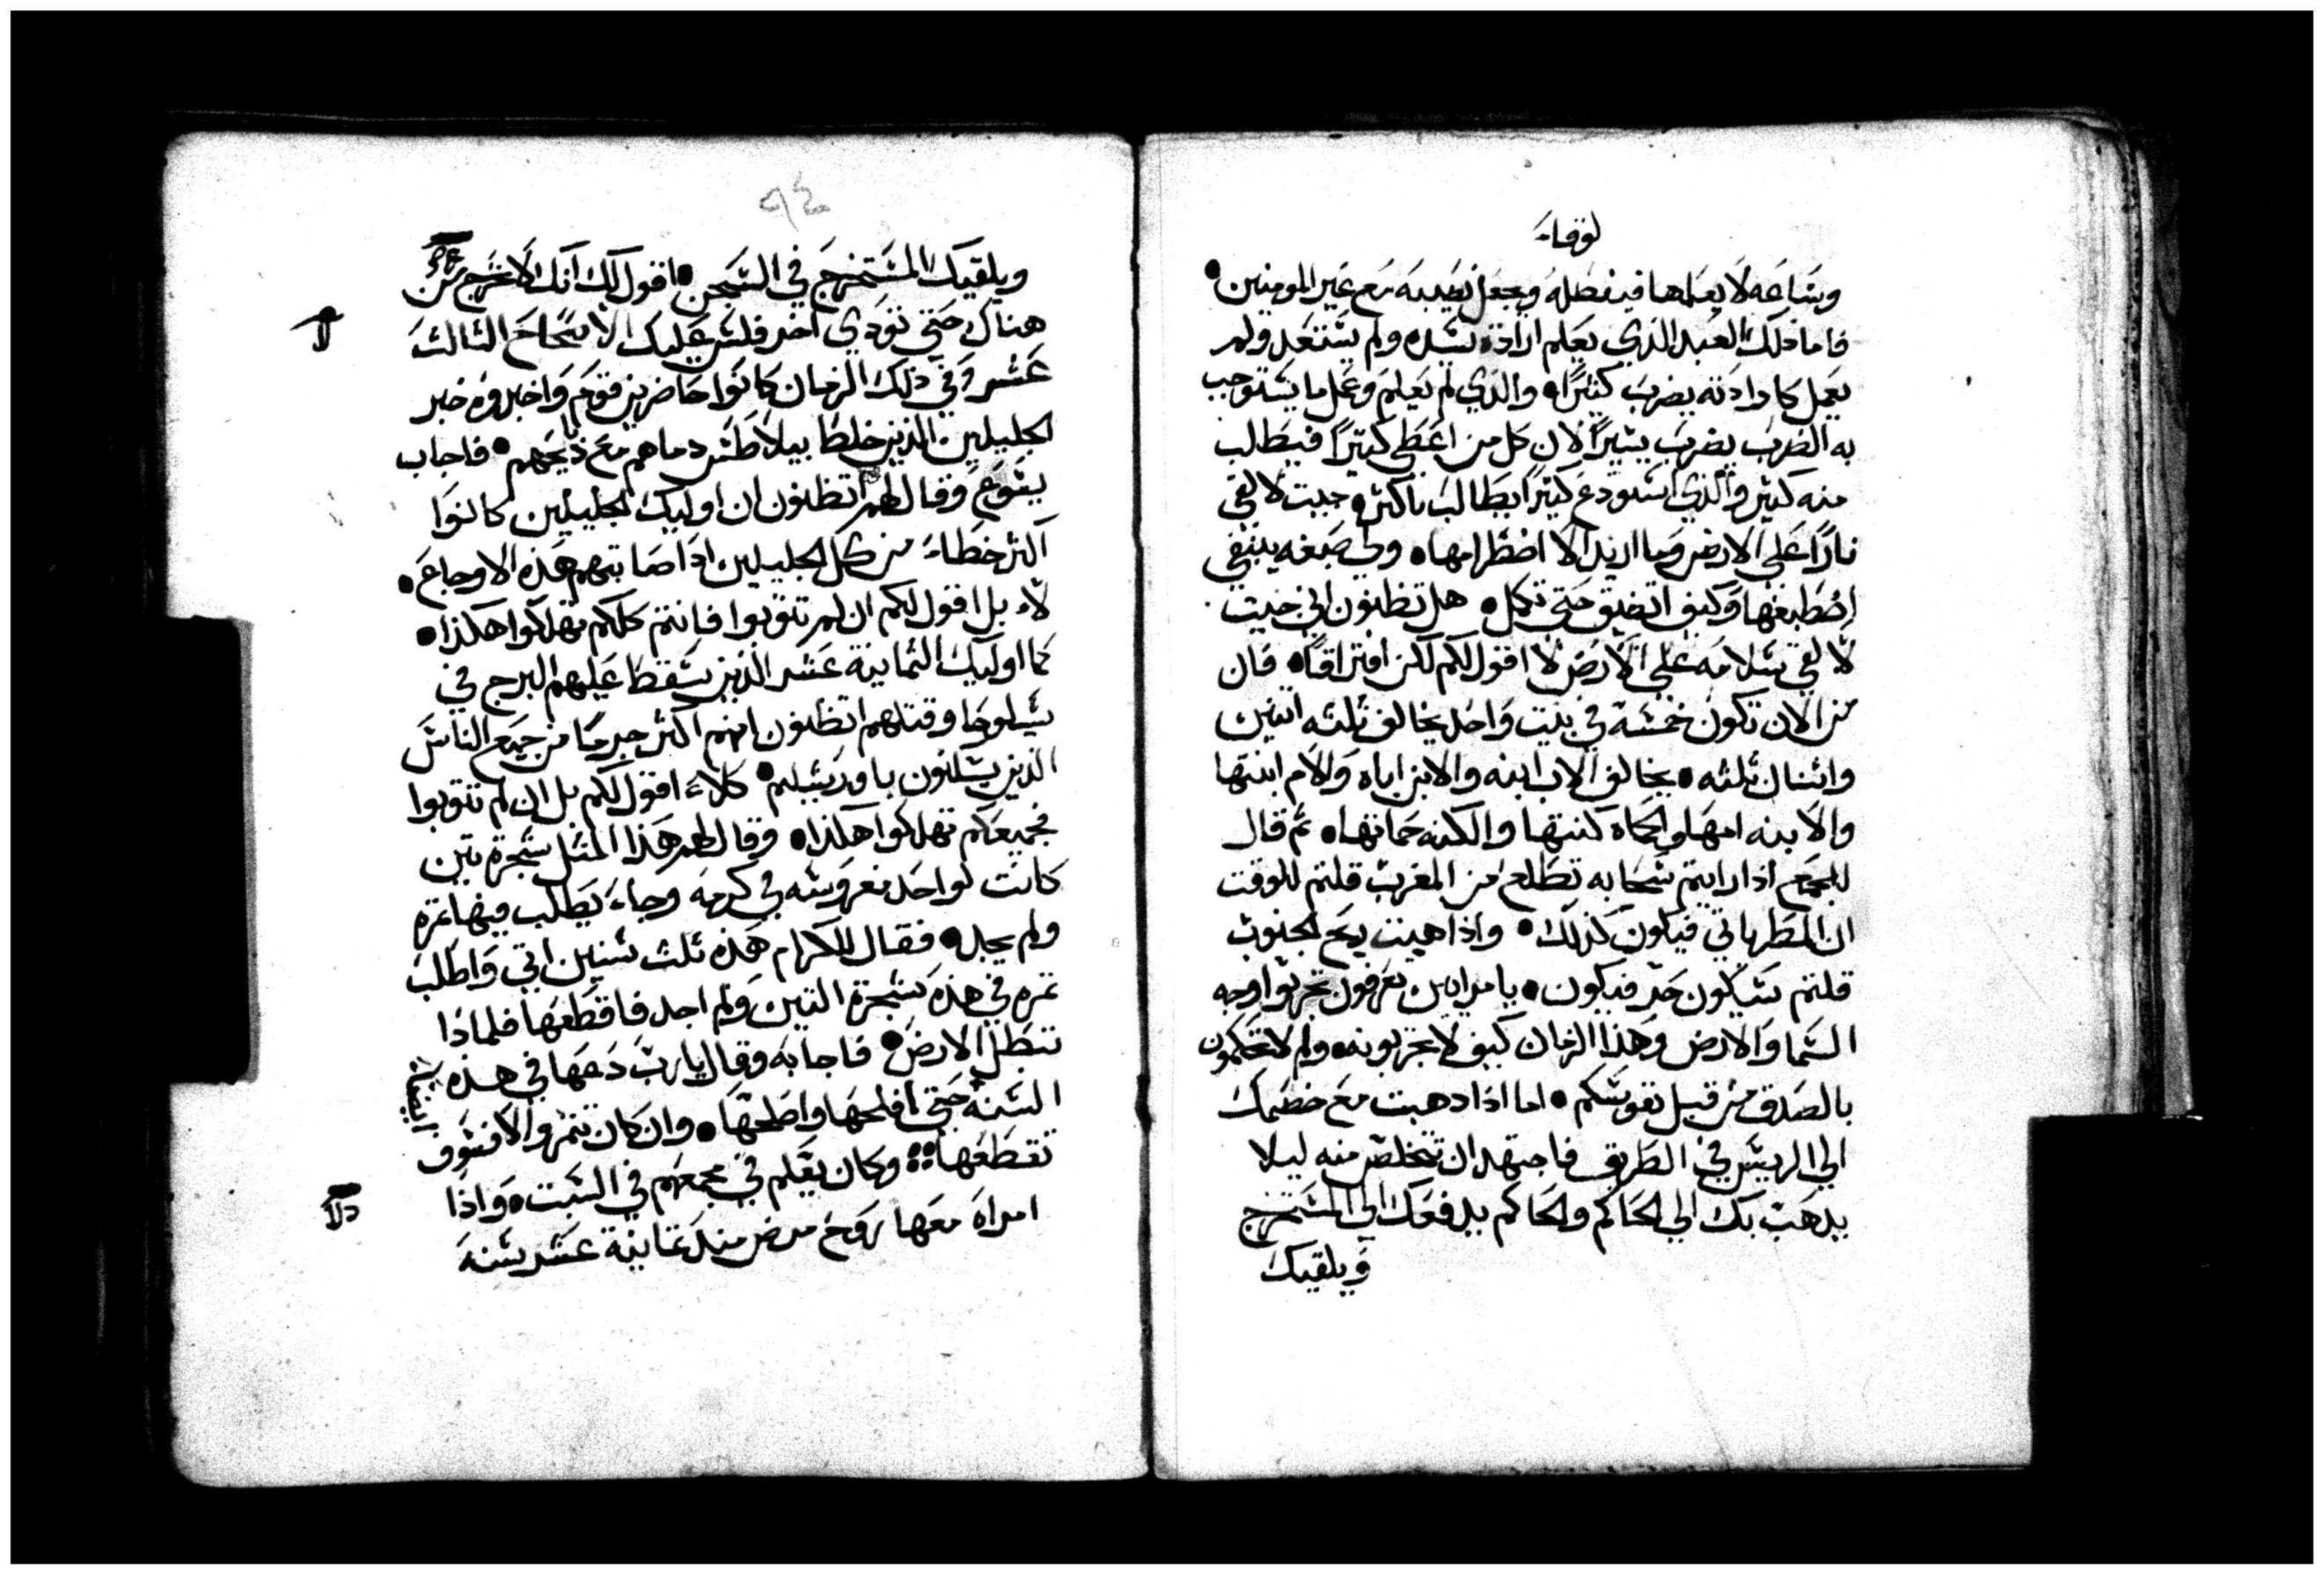 لوقا
وساعه لا يعلمها فيفصله ويجعل نصيبه مع غير المومنين
فاما ذلك العبد الذي يعلم ارادة سيده ولم يستعد ولم
يعمل كارادته يضرب كثيرًا والذي لم يعلم وعمل ما يستوجب
به الضرب يضرب يسيرًا لان كل من اعطي كثيرًا فيطالب
منه كثير والذي استودع كثيرًا يطالب باكثر جيت لالقي
نارًا علي الارض وما اريد الا اضطرامها ولي صبغه ينبغي
اصطبغها وكيف اتضيق حتي تكمل هل تظنون اني جيت
لالقي سلامه علي الارض لا اقول لكم لكن افتراقًا فان
من الان تكون خمسة في بيت واحد يخالف ثلثه اثنين
واثنان ثلثه يخالف الاب ابنه والابن اباه والام ابنتها
والابنه امها والحماه كنتها والكنه حماتها ثم قال
للجمع اذا رايتم سحابه تطلع من المغرب قلتم للوقت
ان المطر ياتي فيكون كذلك واذا هبت ريح الجنوب
قلتم سيكون حر فيكون يا مرايين تعرفون تجربوا وجه
السما والارض وهذا الزمان كيف لا تجربونه ولم لا تحكمون
بالصدق من قبل نفوسكم اما اذا ذهبت مع خصمك
الي الرييس في الطريق فاجتهد ان تتخلص منه ليلا
يذهب بك الي الحاكم والحاكم يدفعك الي المستخرج
ويلقيك
٩٤
ويلقيك المستخرج في السجن اقول لك انك لا تخرج من
هناك حتي تودي اخر فلس عليك الاصحاح الثالث
عشر وفي ذلك الزمان كانوا حاضرين قوم واخبروه خبر
الجليليين الذين خلط بيلاطس دماهم مع ذبايحهم فاجاب
يسوع وقال لهم اتظنون ان اوليك الجليليين كانوا
اكثر خطاء من كل الجليليين اذ اصابتهم هذه الاوجاع
لا بل اقول لكم ان لم تتوبوا فانتم كلكم تهلكوا هكذا
كما اوليك الثمانية عشر الذين سقط عليهم البرج في
شيلوحا وقتلهم اتظنون انهم اكثر جرمًا من جميع الناس
الذين يسكنون باورشيلم كلا اقول لكم بل ان لم تتوبوا
فجميعكم تهلكوا هكذا وقال لهم هذا المثل شجرة تين
كانت لواحد مغروسه في كرمه وجاء يطلب فيها ثمره
ولم يجد فقال للكرام هذه ثلث سنين اتي واطلب
ثمره في هذه شجرة التين ولم اجد فاقطعها فلماذا
تبطل الارض فاجابه وقال يا رب دعها في هذه
السنه حتي افلحها واصلحها وان كان تثمر والا فسوف
تقطعها وكان يعلم في مجمعهم في السبت واذا
امراه معها روح مرض منذ ثمانية عشر سنه